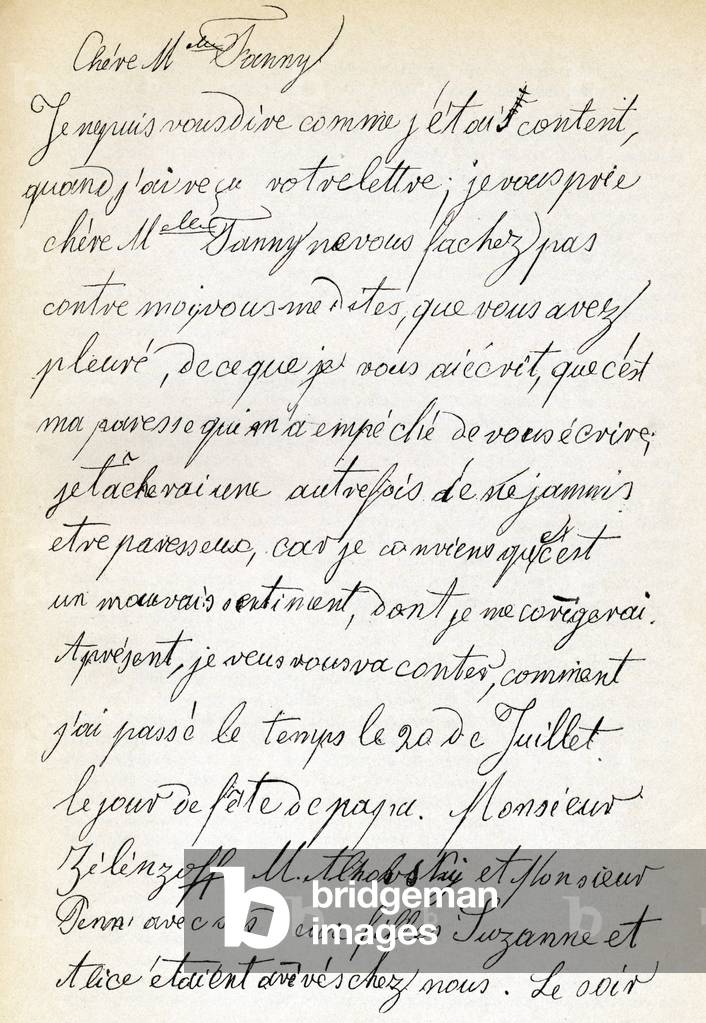 Chére M^elle Fanny
Je ne puis vous dire comme j'étais content,
quand j'ai reçu votre lettre; je vous prie
chére M^elle Fanny ne vous fachez pas
contre moi, vous me dites, que vous avez
pleuré, de ce que je vous ai écrit, que c'ést
ma paresse qui m'a empéché de vous écrire;
je tâcherai une autre fois de ne jamais
etre paresseux, car je conviens que c'ést
un mauvais sentiment, dont je me corigerai.
Aprésent, je veus vous raconter, comment
j'ai passé le temps le 20 de Juillet
le jour de fête de papa. Monsieur
Zélénzoff, M. et Monsieur
Penn avec ses filles Suzanne et
Alice étaient arivés chez nous. Le soir
bridgeman
images